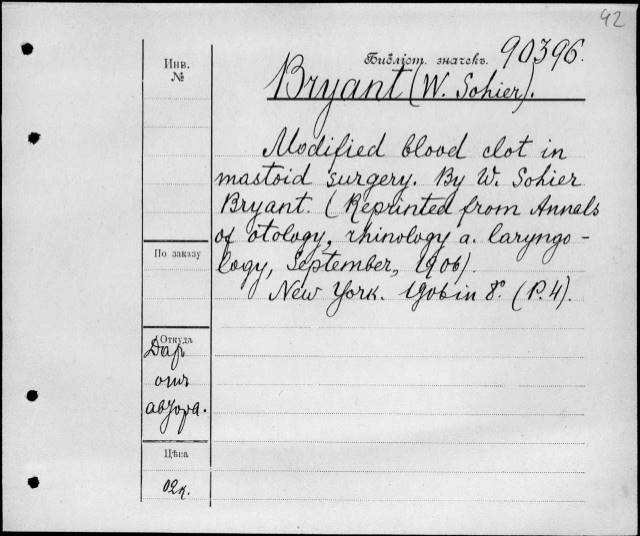 42
Инв.
№
Библіот. значекъ. 90396.
Bryant (W. Sohier).
Modified blood clot in
mastoid surgery. By W. Sohier
Bryant. (Reprinted from Annals
of otology, rhinology a. laryngo-
logy, September, 1906).
New York. 1906 in 8º. (P. 4).
По заказу
Откуда
Даръ
отъ
автора.
Цѣна
02к.